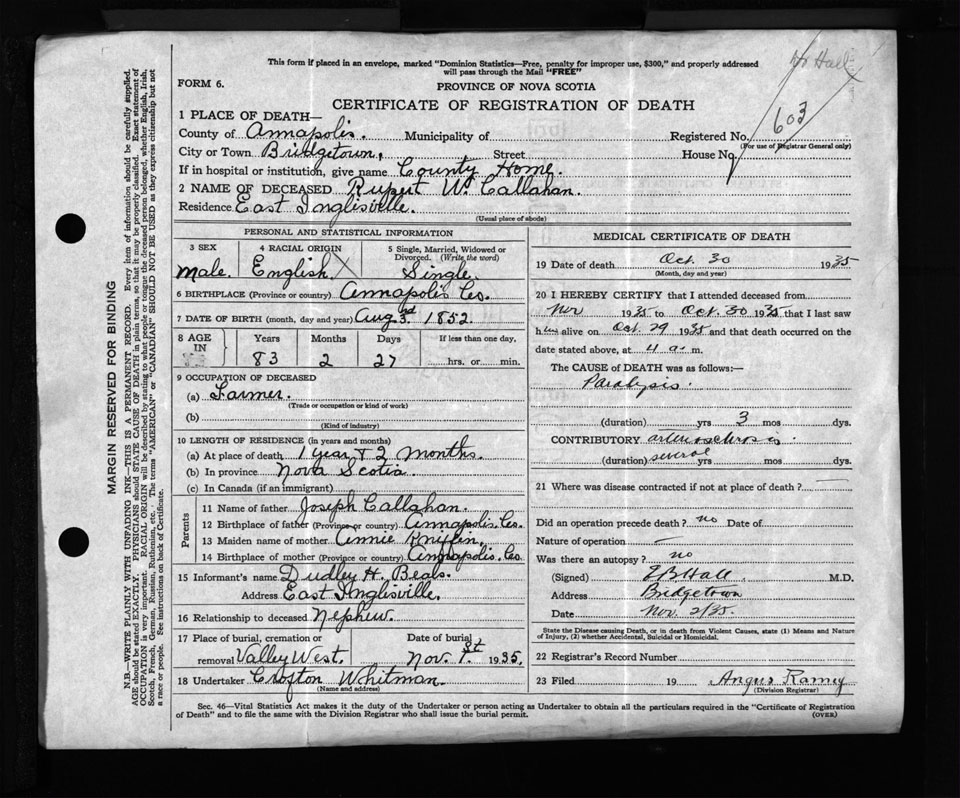 This form if placed in an envelope, marked "Dominion Statistics—Free, penalty for improper use, $300," and properly addressed
will pass through the Mail "FREE"
FORM 6.
PROVINCE OF NOVA SCOTIA
CERTIFICATE OF REGISTRATION OF DEATH
Hall
603
1 PLACE OF DEATH—
County of Annapolis. Municipality of Registered No.
(For use of Registrar General only)
City or Town Bridgetown, Street House No.
If in hospital or institution, give name County Home.
2 NAME OF DECEASED Rupert W. Callahan.
Residence East Inglisville.
(Usual place of abode)
PERSONAL AND STATISTICAL INFORMATION
3 SEX 4 RACIAL ORIGIN 5 Single, Married, Widowed or
Divorced. (Write the word)
Male. English. Single.
6 BIRTHPLACE (Province or country) Annapolis Co.
7 DATE OF BIRTH (month, day and year) Aug. 3rd 1852.
8 AGE IN Years Months Days If less than one day,
83 2 27 hrs. or min.
9 OCCUPATION OF DECEASED
(a) Farmer.
(Trade or occupation or kind of work)
(b)
(Kind of industry)
10 LENGTH OF RESIDENCE (in years and months)
(a) At place of death 1 year & 2 months.
(b) In province Nova Scotia
(c) In Canada (if an immigrant)
Parents
11 Name of father Joseph Callahan.
12 Birthplace of father (Province or country) Annapolis Co.
13 Maiden name of mother Annie Kniffin.
14 Birthplace of mother (Province or country) Annapolis. Co
15 Informant's name Dudley H. Beals.
Address East Inglisville.
16 Relationship to deceased Nephew.
17 Place of burial, cremation or Date of burial
removal Valley West. Nov. 1st 1935.
18 Undertaker Crofton Whitman.
(Name and address)
MEDICAL CERTIFICATE OF DEATH
19 Date of death Oct. 30 1935
(Month, day and year)
20 I HEREBY CERTIFY that I attended deceased from
Nov 1935 to Oct. 30 1935 that I last saw
him alive on Oct. 29 1935 and that death occurred on the
date stated above, at 4 a. m.
The CAUSE of DEATH was as follows:—
Paralysis.
(duration) yrs 3 mos dys.
CONTRIBUTORY arteriosclerosis.
(duration) several yrs mos dys.
21 Where was disease contracted if not at place of death? —
Did an operation precede death? no Date of
Nature of operation —
Was there an autopsy? no
(Signed) Hall M.D.
Address Bridgetown
Date Nov. 2/35.
State the Disease causing Death, or in death from Violent Causes, state (1) Means and Nature
of Injury, (2) whether Accidental, Suicidal or Homicidal.
22 Registrar's Record Number
23 Filed 19 Angus Ramey
(Division Registrar)
Sec. 46—Vital Statistics Act makes it the duty of the Undertaker or person acting as Undertaker to obtain all the particulars required in the "Certificate of Registration
of Death" and to file the same with the Division Registrar who shall issue the burial permit. (OVER)
MARGIN RESERVED FOR BINDING
N.B.—WRITE PLAINLY WITH UNFADING INK—THIS IS A PERMANENT RECORD. Every item of information should be carefully supplied.
AGE should be stated EXACTLY. PHYSICIANS should STATE CAUSE OF DEATH in plain terms, so that it may be properly classified. Exact statement of
OCCUPATION is very important. RACIAL ORIGIN will be described by stating to what people or tongue the deceased person belonged, whether English, Irish,
Scotch, French, German, Russian, Ruthenian, etc. The terms "AMERICAN" or "CANADIAN" SHOULD NOT BE USED as they express citizenship but not
a race or people. See instructions on back of Certificate.